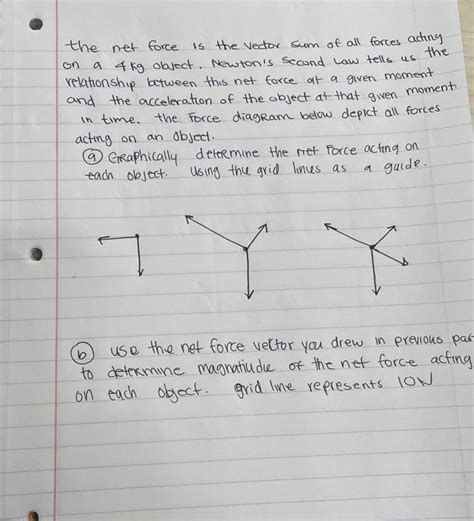 the net force is the vector sum of all forces acting
on a 4 kg object. Newton's second law tells us the
relationship between this net force at a given moment
and the acceleration of the object at that given moment
in time. the force diagram below depict all forces
acting on an object.
(a) Graphically determine the net force acting on
each object. Using the grid lines as a guide.
(b) use the net force vector you drew in previous par
to determine magnatiudie of the net force acting
on each object. grid line represents 10N